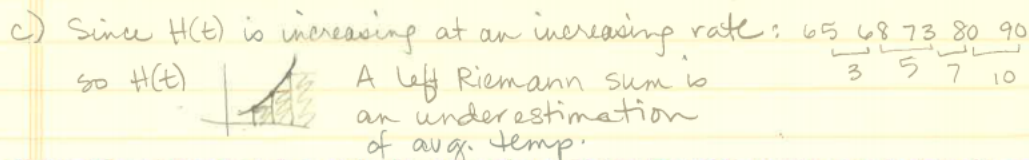 c) Since H(t) is increasing at an increasing rate: 65 68 73 80 90
3 5 7 10
so H(t) A left Riemann sum is
an underestimation
of avg. temp.